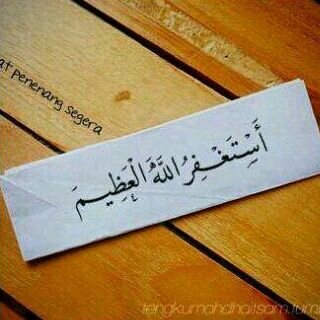 at penenang segera
أَسْتَغْفِرُ اللَّهَ الْعَظِيمَ
tengkumohdhaitsam.tum